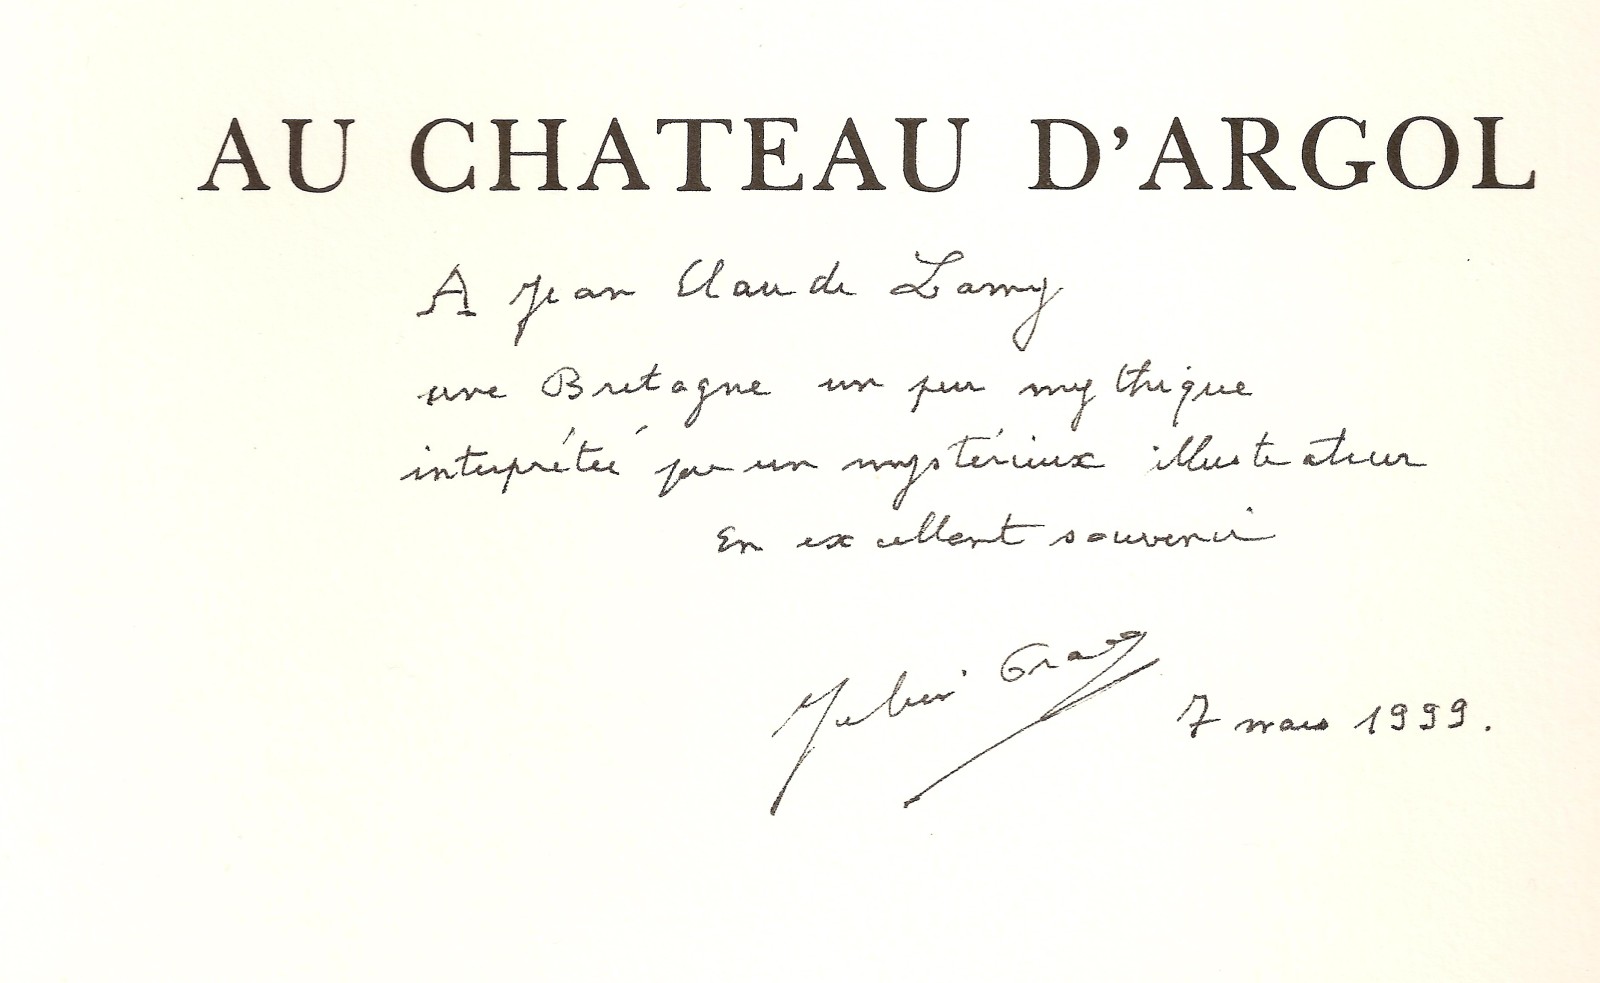 AU CHATEAU D'ARGOL
A Jean Claude Lamy
une Bretagne un peu mythique
interprétée par un mystérieux illustrateur
En excellent souvenir
Julien Gracq
7 mars 1999.